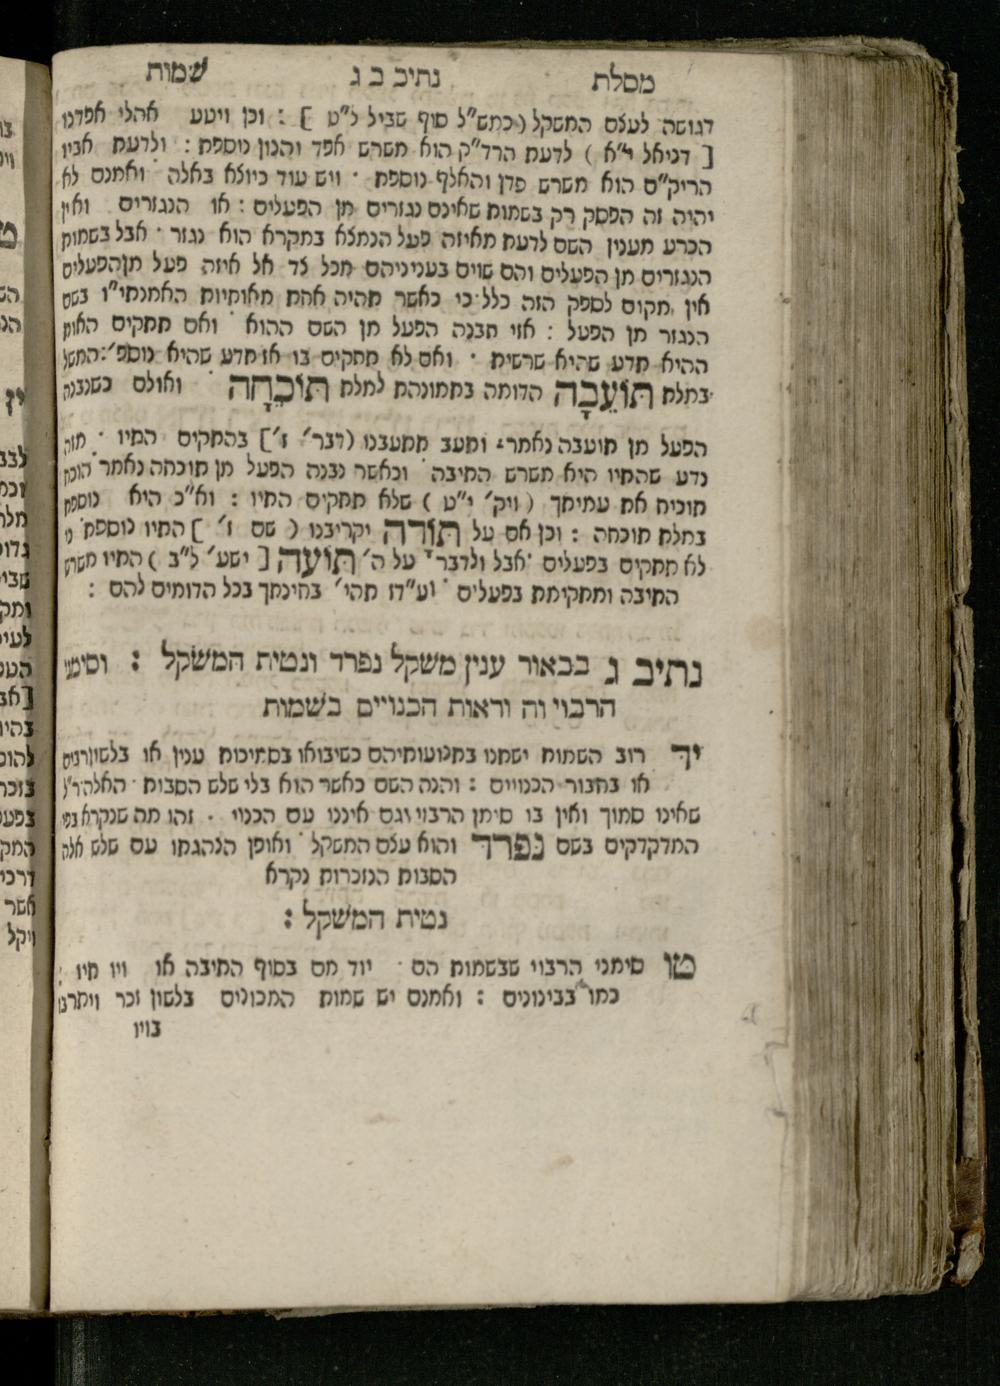 מסלת נתיב ב ג שמות
דגושה לעצם המשקל (כמש"ל סוף שביל ל"ט ] : וכן ויטע אהלי אפדנו
[ דניאל י"א ) לדעת הרד"ק הוא משרש אפד והנון נוספת : ולדעת אביו
הריק"ם הוא משרש פדן והאלף נוספת · ויש עוד כיוצא באלה ואמנם לא
יהיה זה הפסק רק בשמות שאינם נגזרים מן הפעלים : או הנגזרים ואין
הכרע מענין השם לדעת מאיזה פעל הנמצא במקרא הוא נגזר · אבל בשמות
הנגזרים מן הפעלים והם שוים בעניניהם מכל צד אל איזה פעל מן הפעלים
אין מקום לספק הזה כלל כי כאשר תהיה אחת מאותיות האמנתי"ו בשם
הנגזר מן הפעל : אזי תבנה הפעל מן השם ההוא ואם תתקיים האות
ההיא תדע שהיא שרשית · ואם לא תתקיים בו אז תדע שהיא נוספ' : המשל
במלת תּוֹעֵבָה הדומה בתמונתה למלת תּוֹכֵחָה · ואולם כשנבנה
הפעל מן תועבה נאמר ותעב תתעבנו (דבר' ז'] בהתקיים התיו · מזה
נדע שהתיו היא משרש התיבה וכאשר נבנה הפעל מן תוכחה נאמר הוכח
תוכיח את עמיתך ( ויק' י"ט ) שלא תתקיים התיו : וא"כ היא נוספת
במלת תוכחה : וכן אם על תּוֹדה יקריבנו ( שם ז' ] התיו נוספת כי
לא תתקיים בפעלים אבל ולדבר על ה' תּוֹעה [ ישע' ל"ב ) התיו משרש
התיבה ומתקימת בפעלים וע"דז תהי' בחינתך בכל הדומים להם :
נתיב ג בבאור ענין משקל נפרד ונטית המשקל : וסימני
הרבוי וה וראות הכנויים בשמות
יד רוב השמות ישתנו בתנועותיהם כשיבואו בסמיכות ענין או בלשון רבים
או בחבור הכנויים : והנה השם כאשר הוא בלי שלש הסבות האלה ר"ל
שאינו סמוך ואין בו סימן הרבוי וגם איננו עם הכנוי . זהו מה שנקרא בפי
המדקדקים בשם נִפרד והוא עצם המשקל ואופן הנהגתו עם שלש אלה
הסבות הנזכרות נקרא
נטית המשקל :
טו סימני הרבוי שבשמות הם יוד מם בסוף התיבה או ויו תיו :
כמו בבינונים : ואמנם יש שמות המכונים בלשון זכר ויתרבו
בויו